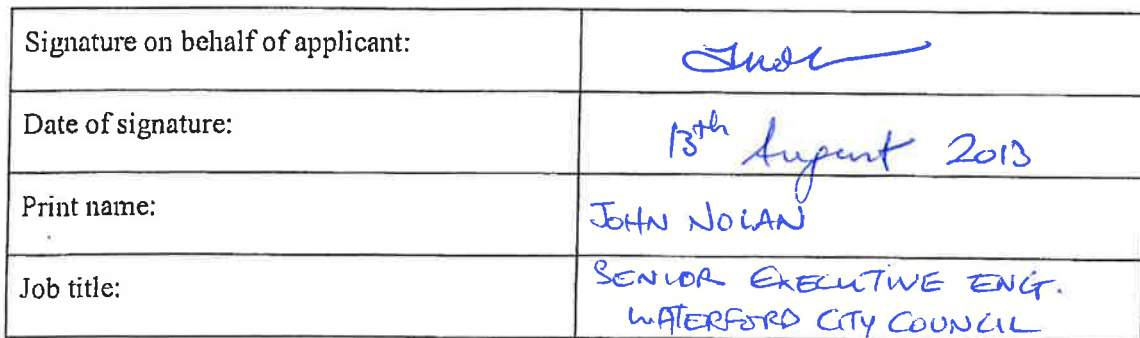 Signature on behalf of applicant:
Date of signature: 13th August 2013
Print name: JOHN NOLAN
Job title: SENIOR EXECUTIVE ENG.
WATERFORD CITY COUNCIL